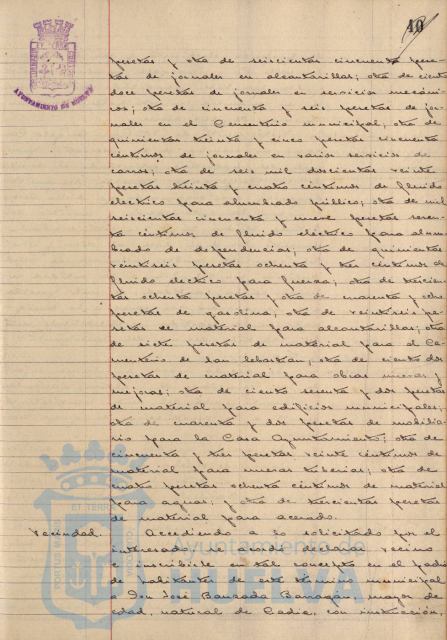 40
AYUNTAMIENTO DE HUELVA
pesetas y otra de seiscientas cincuenta pese-
tas de jornales en alcantarillas; otra de ciento
doce pesetas de jornales en servicios mecáni-
cos; otra de cincuenta y seis pesetas de jor-
nales en el Cementerio municipal; otra de
quinientas treinta y cinco pesetas cincuenta
céntimos de jornales en varios servicios de
carros; otra de seis mil doscientas veinte
pesetas treinta y cuatro céntimos de fluido
eléctrico para alumbrado público; otra de mil
seiscientas cincuenta y nueve pesetas seten-
ta céntimos de fluido eléctrico para alum-
brado de dependencias; otra de quinientas
veintiseis pesetas ochenta y tres céntimos de
fluido eléctrico para fuerza; otra de trescien-
tas ochenta pesetas y otra de cuarenta y ocho
pesetas de gasolina; otra de veintiseis pe-
setas de material para alcantarillas; otra
de siete pesetas de material para el Ce-
menterio de San Sebastian; otra de ciento dos
pesetas de material para obras nuevas y
mejoras; otra de ciento setenta y dos pesetas
de material para edificios municipales;
otra de cuarenta y dos pesetas de mobilia-
rio para la Casa Ayuntamiento; otra de
cincuenta y tres pesetas veinte céntimos de
material para nuevas tuberias; otra de
cuatro pesetas ochenta céntimos de material
para aguas; y otra de trescientas pesetas
de material para acerado.
Vecindad. Accediendo a lo solicitado por el
interesado se acordó declarar vecino
e inscribirle en tal concepto en el padrón
de habitantes de este término municipal
a Don José Banzada Barragán, mayor de
edad, natural de Cadiz, con instrucción,
Ayuntamiento de
HUELVA